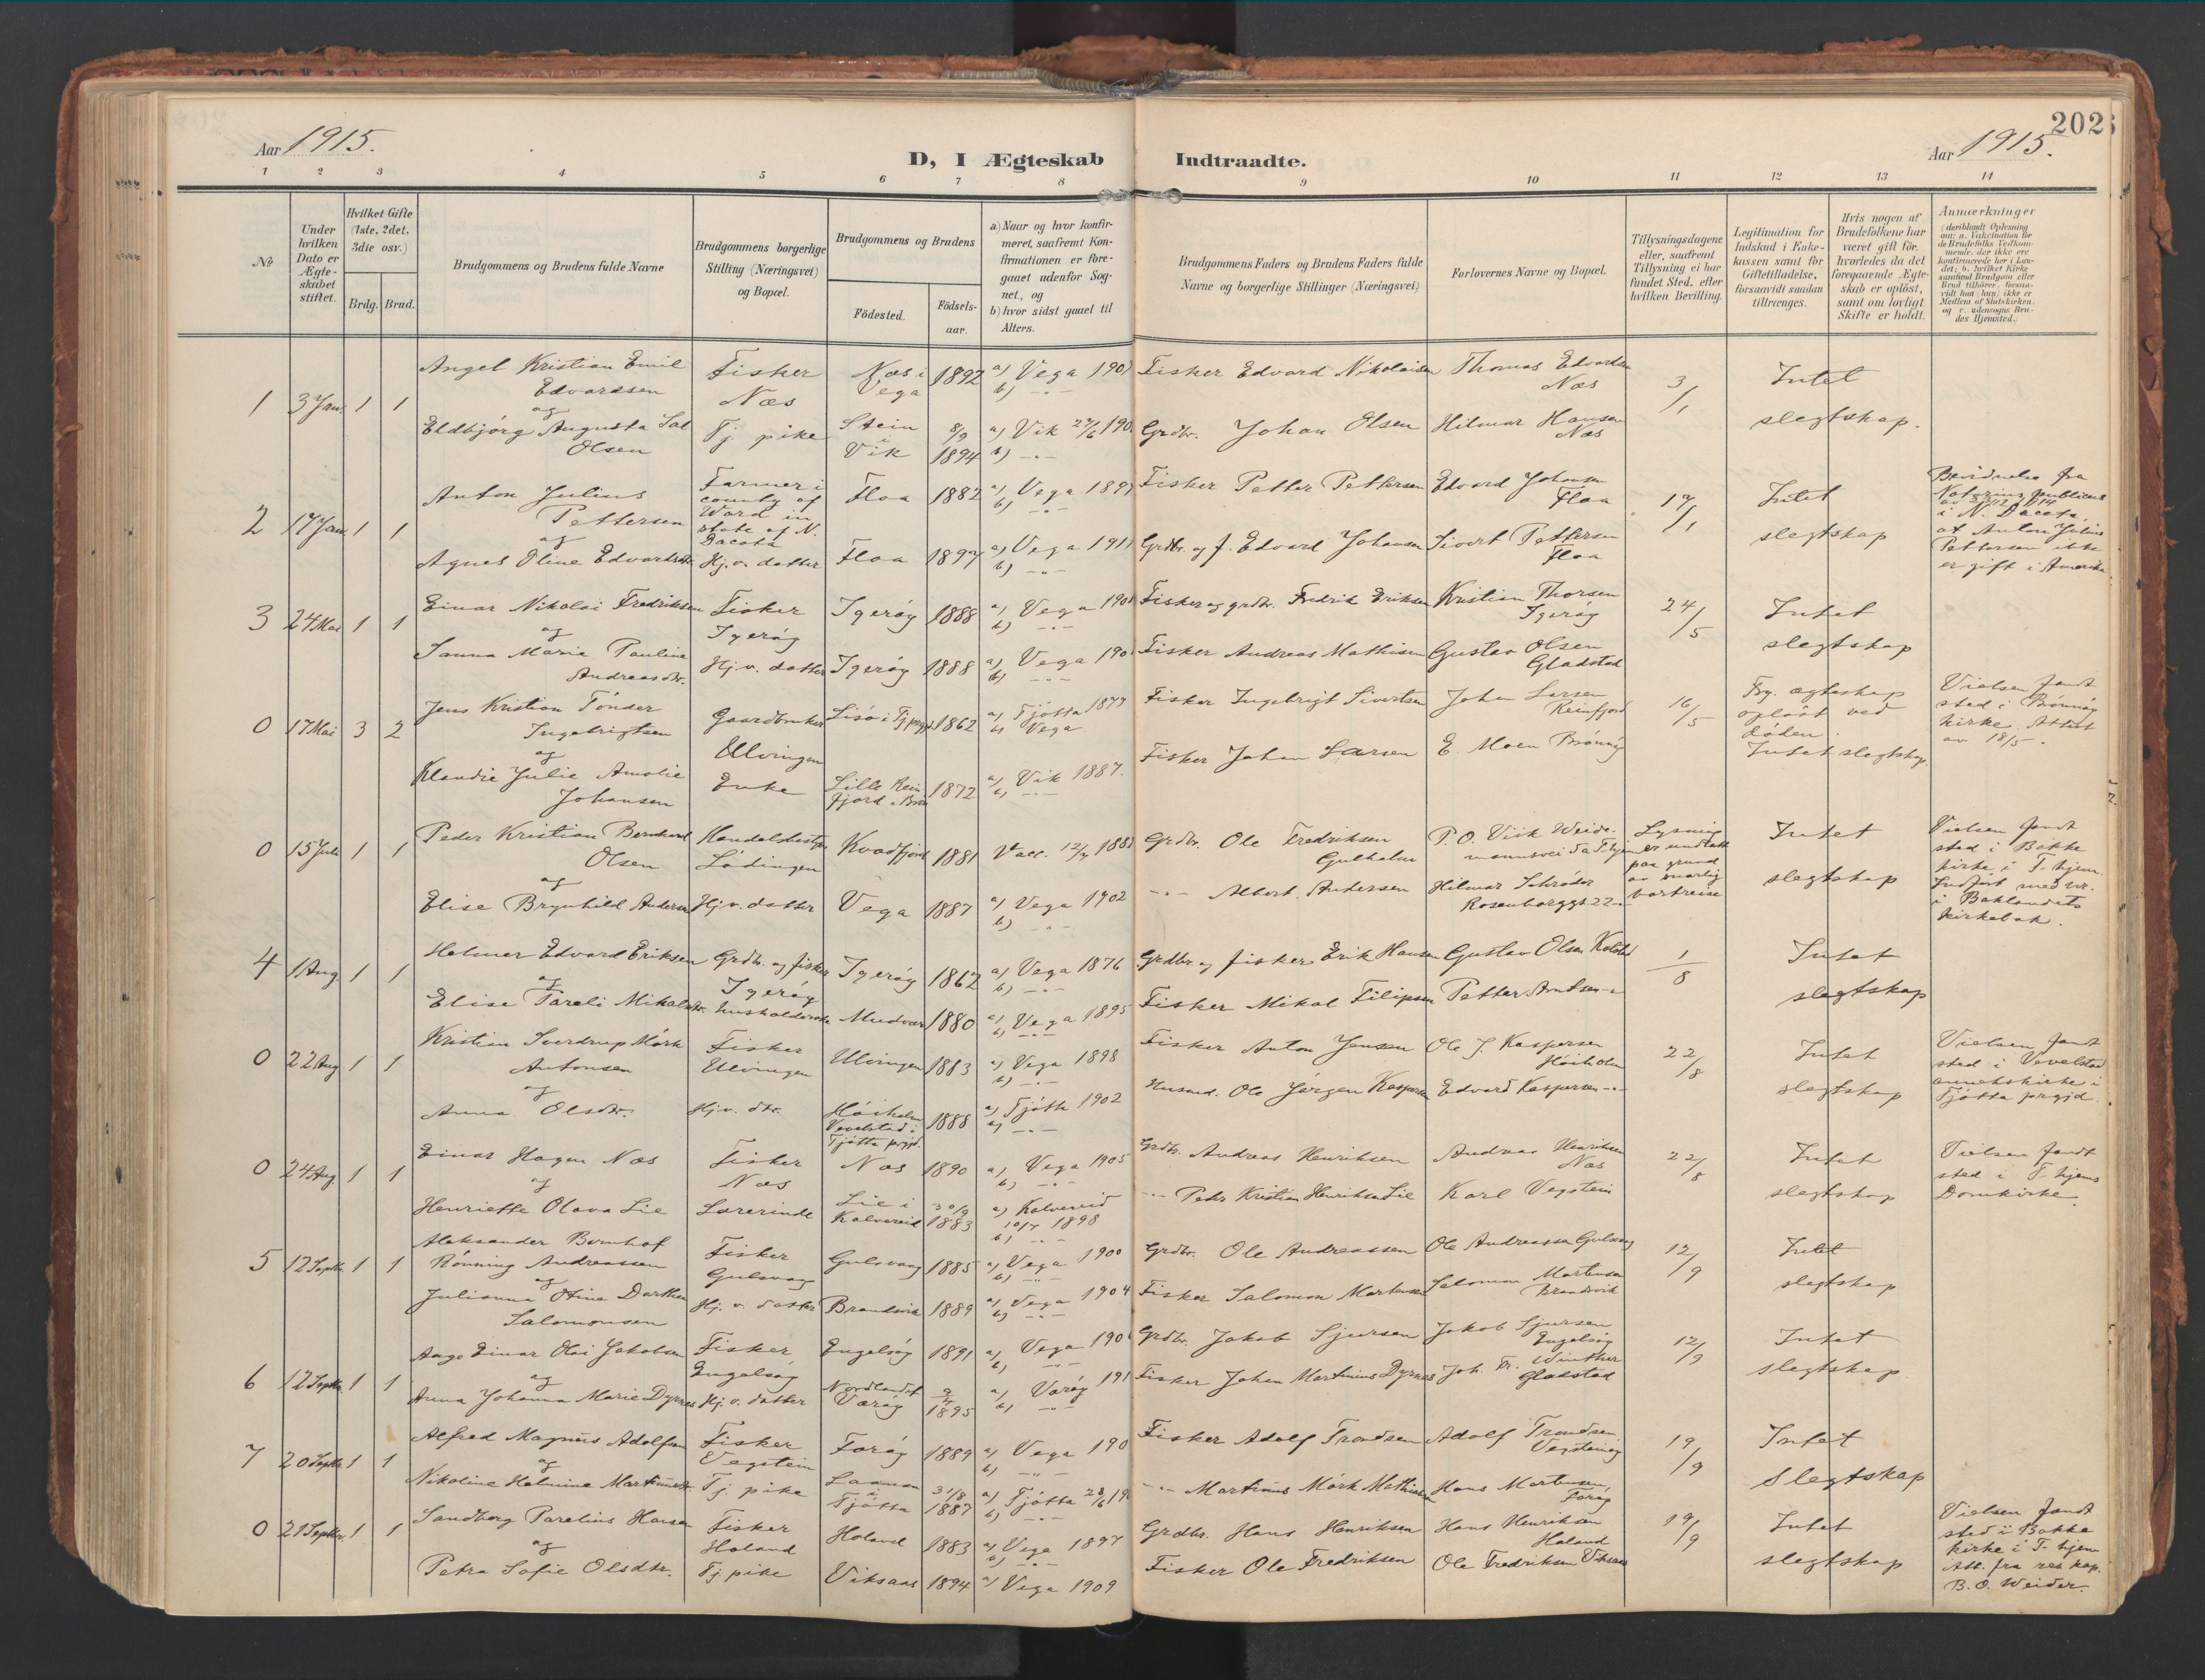 202
Aar 1915.
D, I Ægteskab Indtraadte.
Aar 1915.
1 2 3 4 5 6 7 8 9 10 11 12 13 14
№
Under hvilken Dato er Ægteskabet stiftet.
Hvilket Gifte (1ste, 2det, 3die osv.)
Brdg. Brud.
Brudgommens og Brudens fulde Navne
Brudgommens borgerlige Stilling (Næringsvei) og Bopæl.
Brudgommens og Brudens
Fødested.
Fødselsaar.
a) Naar og hvor konfirmeret, saafremt Konfirmationen er foregaaet udenfor Sognet, og
b) hvor sidst gaaet til Alters.
Brudgommens Faders og Brudens Faders fulde Navne og borgerlige Stillinger (Næringsvei)
Forlovernes Navne og Bopæl.
Tillysningsdagene eller, saafremt Tillysning ei har fundet Sted, efter hvilken Bevilling.
Legitimation for Indskud i Enkekassen samt for Giftetilladelse, forsaavidt saadan tiltrænges.
Hvis nogen af Brudefolkene har været gift før, hvorledes da det foregaaende Ægteskab er opløst, samt om lovligt Skifte er holdt.
Anmærkninger
(deriblandt Oplysning om: a. Vakcination for de Brudefolks Vedkommende, der ikke ere konfirmerede her i Landet; b. hvilket Kirkesamfund Brudgom eller Brud tilhører, forsaavidt han (hun) ikke er Medlem af Statskirken, og c. udensogns Brudes Hjemsted.)
1 3 Jan. 1 1 Angel Kristian Emil Edvardsen Fisker Næs Næs i Vega 1892 a) Vega 190 b) -"- Fisker Edvard Nikolaisen Thomas Edvardsen Næs 3/1 Intet slegtskap.
og
Eldbjørg Augusta Sal Olsen Tj. pike Stein i Vik 8/9 1894 a) Vik 24/6 190 b) -"- Grdbr. Johan Olsen Hilmar Hansen Næs
2 17 Jan. 1 1 Anton Julius Pettersen Farmer i county of Ward in state of N. Dacota Floa 1882 a) Vega 1897 b) -"- Fisker Petter Pettersen Edvard Johansen Floa 17/1 Intet slegtskap Bevidnelse fra Notarius publicus av 3/12 1914 i N. Dacota, at Anton Julius Pettersen ikke er gift i Amerika
og
Agnes Oline Edvardsdtr. Hj.v. datter Floa 1897 a) Vega 1911 b) -"- Grdbr. og f. Edvard Johansen Sivert Pettersen Floa
3 24 Mai 1 1 Einar Nikolai Fredriksen Fisker Igerøy Igerøy 1888 a) Vega 190 b) -"- Fisker og grdbr. Fredrik Eriksen Kristian Thorsen Igerøy 24/5 Intet slegtskap
og
Sanna Marie Pauline Andreasdtr. Hj.v. datter Igerøy 1888 a) Vega 190 b) -"- Fisker Andreas Mathisen Gustav Olsen Gladstad
0 17 Mai 3 2 Jens Kristian Tønder Ingebrigtsen Gaardbruker Ulvingen 1862 a) Tjøtta 1877 b) Vega Fisker Ingebrigt Sivertsen Johan Larsen Reinfjord 16/5 Frg. ægteskap opløst ved døden. Intet slegtskap. Vielsen fandt sted i Brønnøy kirke. Attest av 18/5.
og
Klaudie Julie Amalie Johansen Enke Lille Reinfjord i Brøn 1872 a) Vik 1887. b) -"- Fisker Johan Larsen E. Moen Brønnøy
0 15 Juli 1 1 Peder Kristian Bernhard Olsen Handelsbestyr Lødingen Kvædfjord 1881 Grdbr. Ole Fredriksen Gulholm P. O. Viik Weidemannsvei 5a T.hjem Lysning er undlatt paa grund av snarlig bortreise Intet slegtskap Vielsen fandt sted i Bakke kirke i T.hjem. Indført med nr. i Baklandets kirkebok.
og
Elise Brynhild Andersen Hj.v. datter Vega 1887 a) Vega 1902 b) -"- -"- Albert Andersen Hilmar Schrøder Rosenborggt. 22
4 1 Aug. 1 1 Helmer Edvard Eriksen Grdbr. og fisker Igerøy Igerøy 1862 a) Vega 1876 b) -"- Grdbr. og fisker Erik Hansen Gustav Olsen 1/8 Intet slegtskap
og
Elise Pareli Mikalsdtr. husholderske Mudvær 1880 a) Vega 1895 b) -"- Fisker Mikal Filipsen Petter Arntsen -"-
0 22 Aug 1 1 Kristian Sverdrup Mørk Antonsen Fisker Ulvingen Ulvingen 1883 a) Vega 1898 b) -"- Fisker Anton Jensen Ole J. Kaspersen Høiholm 22/8 Intet slegtskap Vielsen fandt sted i Vevelstad annekskirke i Tjøtta prgjd.
og
Anna Olsdtr. Hj.v. dtr. Høiholm Vevelstad i Tjøtta prgjd. 1888 a) Tjøtta 1902 b) -"- Husmd. Ole Jørgen Kaspersen Edvard Kaspersen -"-
0 24 Aug. 1 1 Einar Hagen Næs Fisker Næs Næs 1890 a) Vega 1905 b) -"- Grdbr. Andreas Henriksen Andreas Henriksen Næs 22/8 Intet slegtskap Vielsen fandt sted i T-hjems Domkirke.
og
Henriette Olava Lie Lærerinde Lie i Kolvereid 30/9 1883 a) Kolvereid 10/7 1898 b) -"- -"- Peder Kristian Henriksen Lie Karl Vegstein
5 12 Septbr. 1 1 Aleksander Bernhof Rønning Andreassen Fisker Gulsvaag Gulsvaag 1885 a) Vega 1900 b) -"- Grdbr. Ole Andreassen Ole Andreassen Gulsvaag 12/9 Intet slegtskap
og
Julianna Stine Dorthea Salomonsen Hj. v. datter Brandsvik 1889 a) Vega 1904 b) -"- Fisker Salomon Martensen Salomon Martensen Brandsvik
6 12 Septbr. 1 1 Aage Einar Olai Jakobsen Fisker Engelsøy Engelsøy 1891 a) Vega 190 b) -"- Grdbr. Jakob Sjursen Jakob Sjursen Engelsøy 12/9 Intet slegtskap
og
Anna Johanna Marie Dyrnes Hj. v. datter Nordlandet Værøy 1895 a) Værøy 191 b) -"- Fisker Johan Martinius Dyrnes Joh. Fr. Winther Gladstad
7 20 Septbr. 1 1 Alfred Magnus Adolfsen Fisker Vegstein Færøy 1889 a) Vega 190 b) -"- Fisker Adolf Trondsen Adolf Trondsen Vegsteinøy 19/9 Intet Slegtskap
og
Nikoline Helmine Martinusdtr. Tj. pike Tjøtta 31/8 1887 a) Tjøtta b) -"- -"- Martinus Mørk Mathisen Hans Martensen Færøy
0 21 Septbr. 1 1 Sandberg Parelius Hansen Fisker Holand Holand 1883 a) Vega 1897 b) -"- Grdbr. Hans Henriksen Hans Henriksen Holand 19/9 Intet slegtskap Vielsen fandt sted i Bakke kirke i T-hjem Att. fra res. kap. B. O. Weider.
og
Petra Sofie Olsdtr. Tj. pike Viksaas 1894 a) Vega 1909 Fisker Ole Fredriksen Ole Fredriksen Viksaas